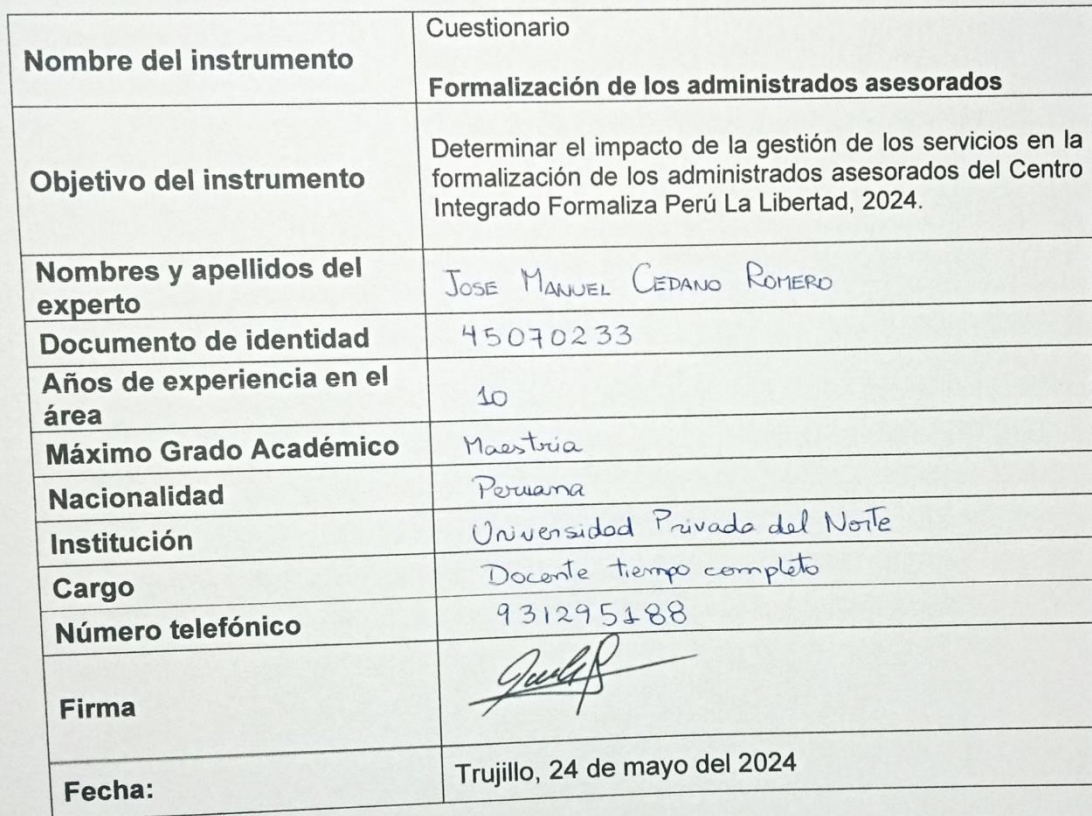 Nombre del instrumento
Cuestionario
Formalización de los administrados asesorados
Objetivo del instrumento
Determinar el impacto de la gestión de los servicios en la
formalización de los administrados asesorados del Centro
Integrado Formaliza Perú La Libertad, 2024.
Nombres y apellidos del
experto
JOSE MANUEL CEDANO ROMERO
Documento de identidad
45070233
Años de experiencia en el
área
10
Máximo Grado Académico
Maestria
Nacionalidad
Peruana
Institución
Universidad Privada del Norte
Cargo
Docente tiempo completo
Número telefónico
931295188
Firma
Fecha:
Trujillo, 24 de mayo del 2024